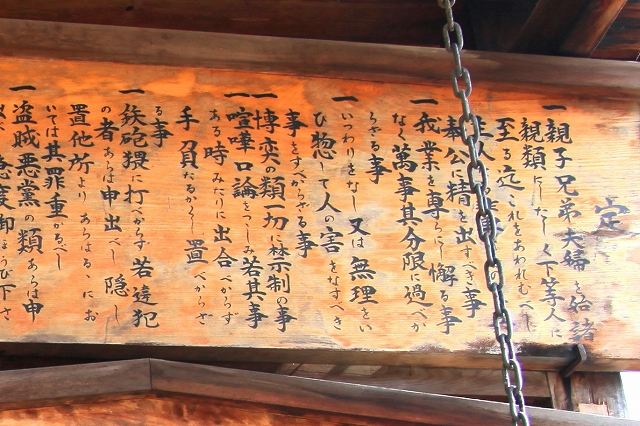 定
一 親子兄弟夫婦を始諸
親類にしたしく下等人に
至る迄これをあわれむべし
主人有輩の
奉公に精を出すべき事
一 我業を専らにし懈る事
なく萬事其分限に過べか
らざる事
一 いつわりをなし又は無理をい
ひ惣して人の害をなすべき
事をすべからざる事
一 博奕の類一切に禁制の事
一 喧嘩口論をつつしみ若其事
ある時みだりに出合べからず
手負たるかくし置べからざ
る事
一 鉄砲猥に打べからず若違犯
の者あらば申出べし隠し
置他所よりあらはるゝにお
いては其罪重かるべし
一 盗賊悪黨の類あらは申
急度御ほうび下さ